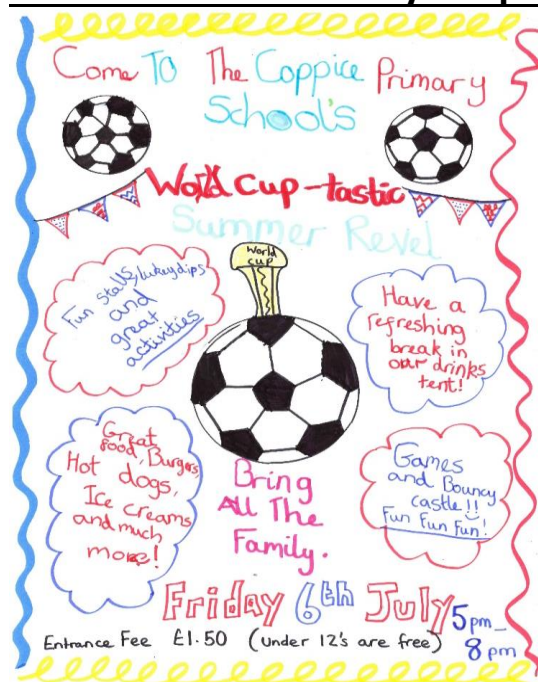 Come To The Coppice Primary
School's
World Cup-tastic
Summer Revel
World
cup
Fun stalls, lukeydips
and
great
activities
Have a
refreshing
break in
our drinks
tent!
Great
food, Burgers,
Hot dogs,
Ice creams
and much
more!
Games
and Bouncy
castle!!
Fun Fun Fun!
Bring
All The
Family.
Friday 6th July 5pm-
8pm
Entrance Fee £1.50 (under 12's are free)